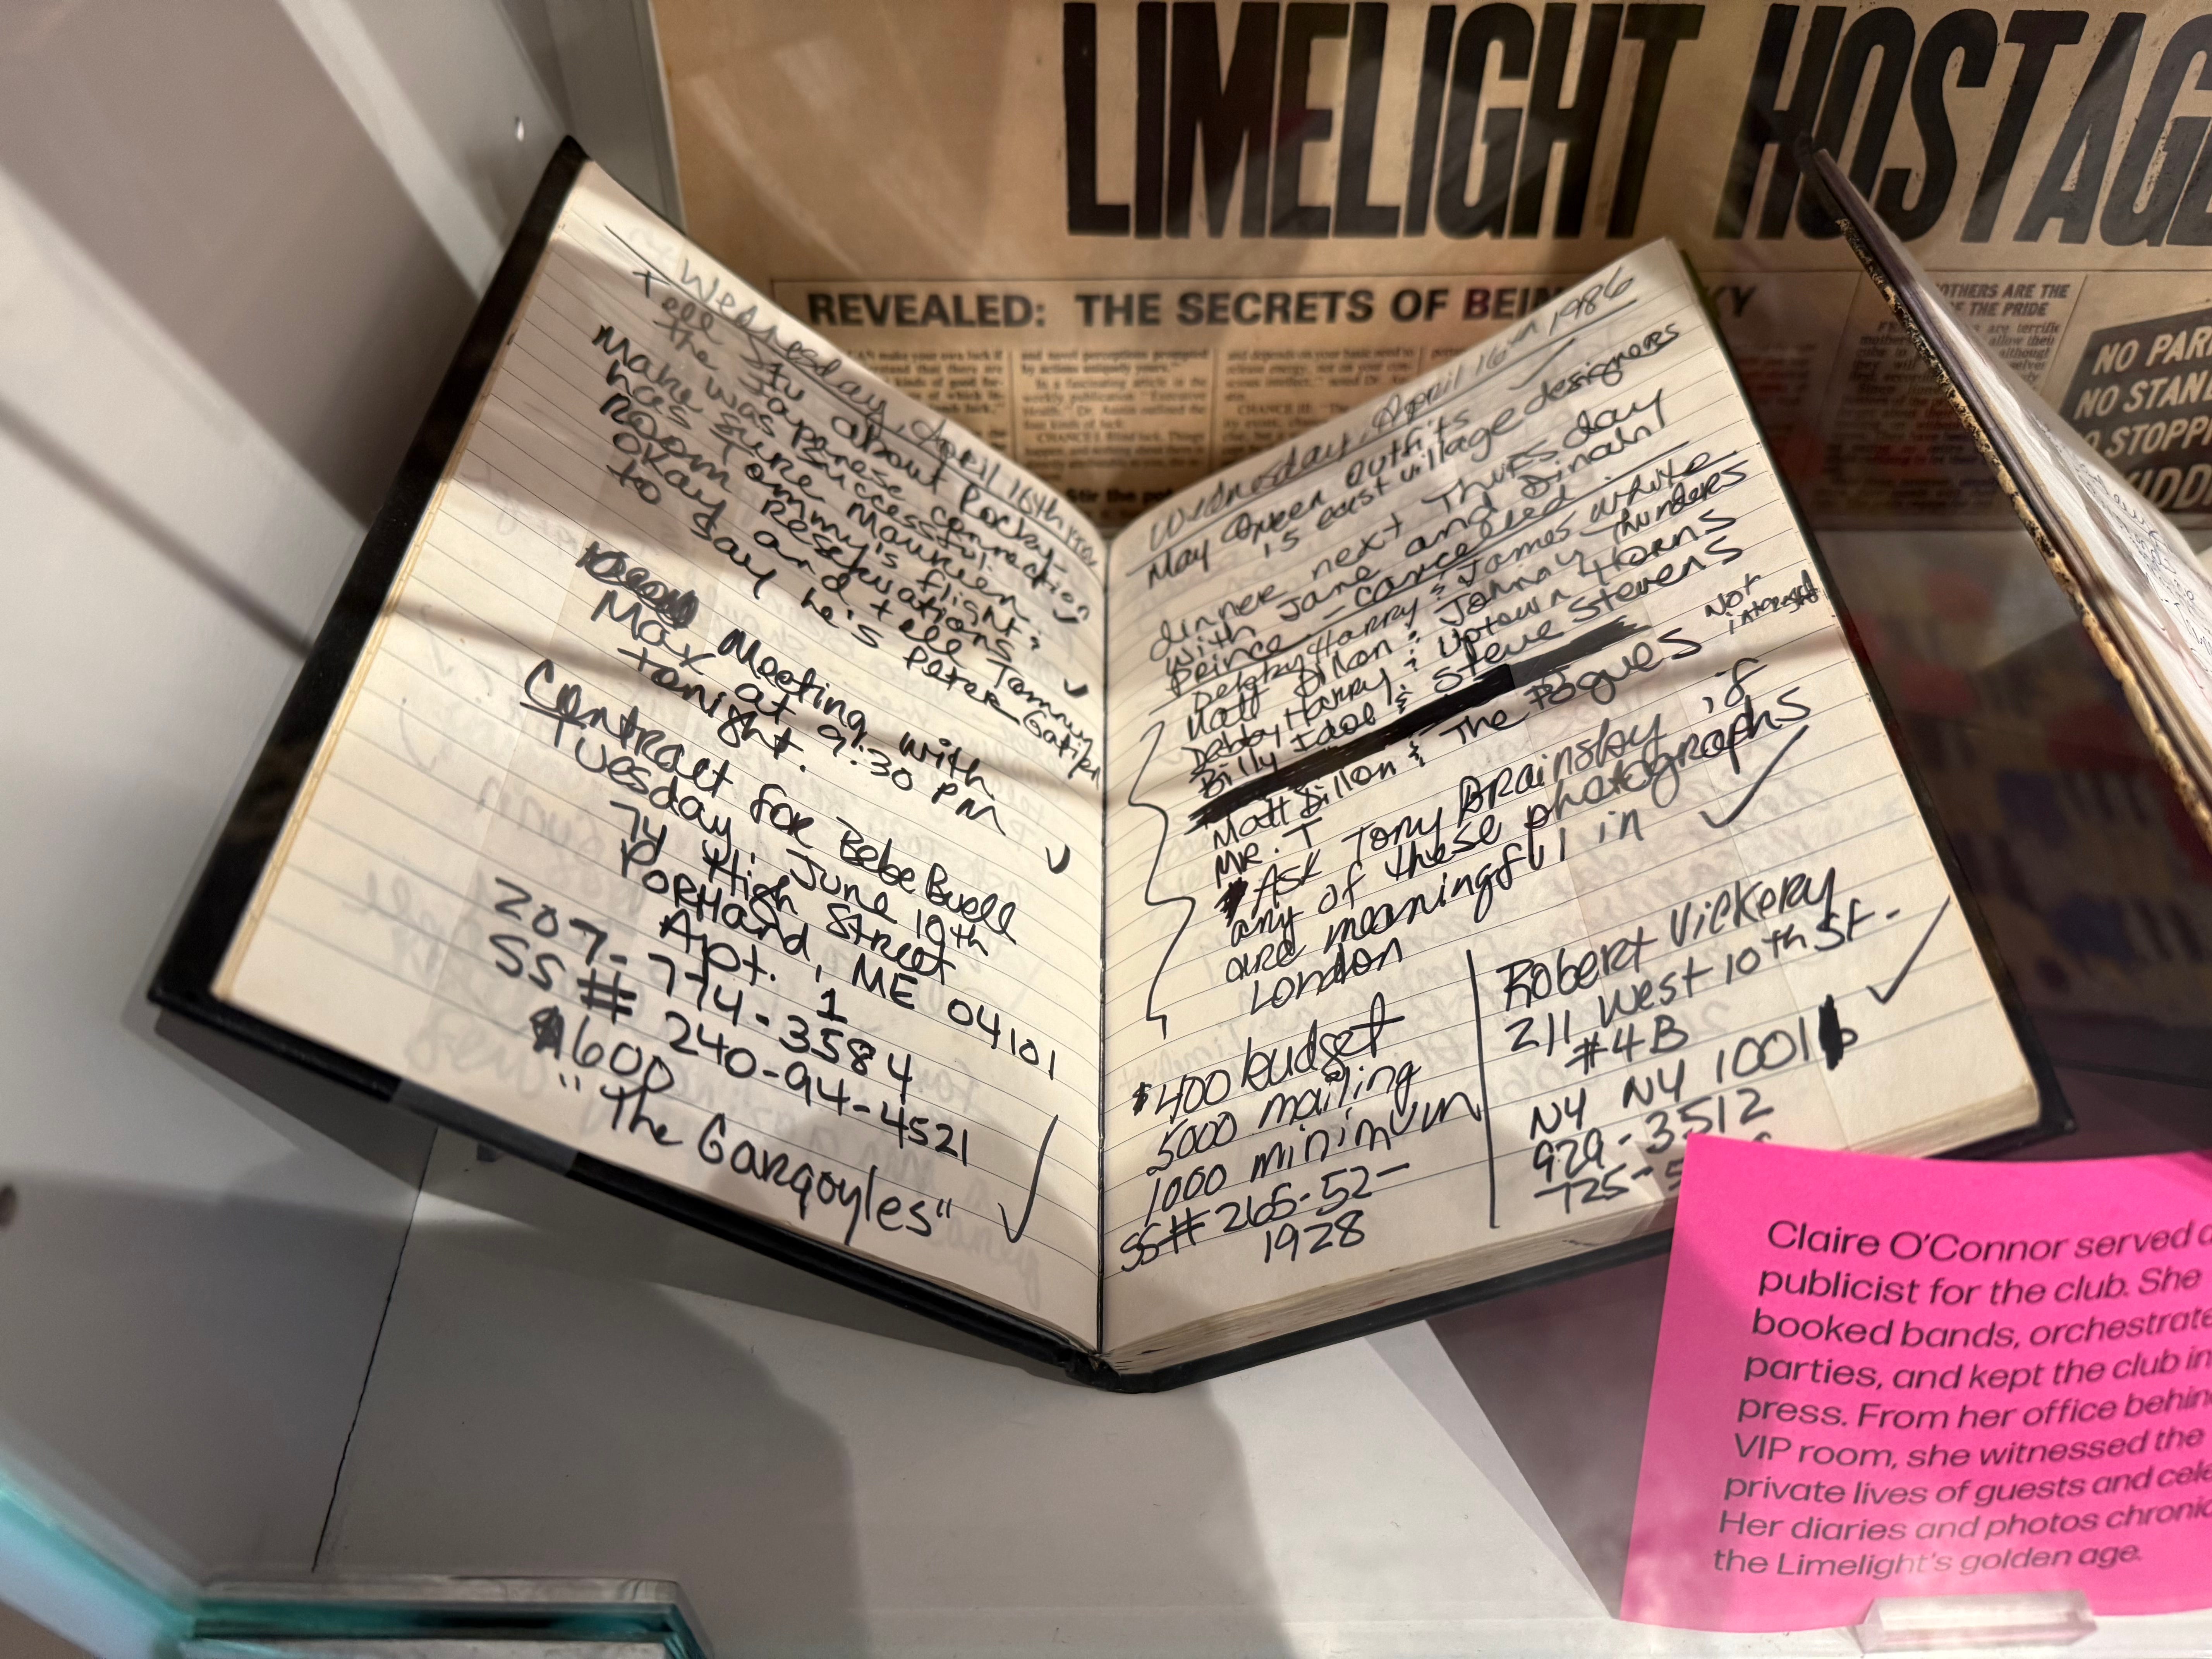 LIMELIGHT HOSTAG
REVEALED: THE SECRETS OF BEIN KY
OTHERS ARE THE
OF THE PRIDE
NO PAR
NO STAN
O STOPP
Wednesday, April 16th 1986
Tell Stu about Rocky.
the Japanese connection
was successful.
Make sure Maureen
has Tommy's flight &
Room Reservations
okay and tell Tommy
to say he's Peter
Meeting with
Max at 9:30 PM
tonight.
Contract for Bebe Buell
Tuesday, June 10th
74 High Street
Portland, ME 04101
Apt. 1
207-774-3584
SS # [redacted]
$1600
"The Gargoyles"
Wednesday, April 16th 1986
May Queen outfits
is east village designers
dinner next Thursday
with Jane and Dinah
Prince - cancelled
Debby Harry & James White
Matt Dillon & Johnny Thunders
Debby Harry & Uptown Horns
Billy Idol & Steve Stevens
Matt Dillon & The Pogues Not interested
MR. T
Ask Tony Brainsby if
any of these photographs
are meaningful in
London
$400 budget
5000 mailing
1000 minimum
SS# [redacted]
Robert Vickery
211 West 10th St.
#4B
NY NY 1001
929-3512
725-5
Claire O'Connor served a
publicist for the club. She
booked bands, orchestrate
parties, and kept the club in
press. From her office behin
VIP room, she witnessed the
private lives of guests and cele
Her diaries and photos chronic
the Limelight's golden age.